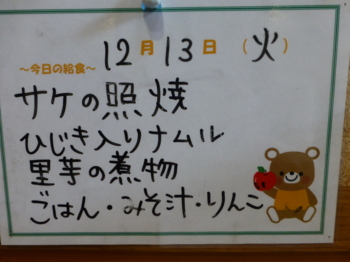 12月13日(火)
～今日の給食～
サケの照焼
ひじき入りナムル
里芋の煮物
ごはん・みそ汁・りんご